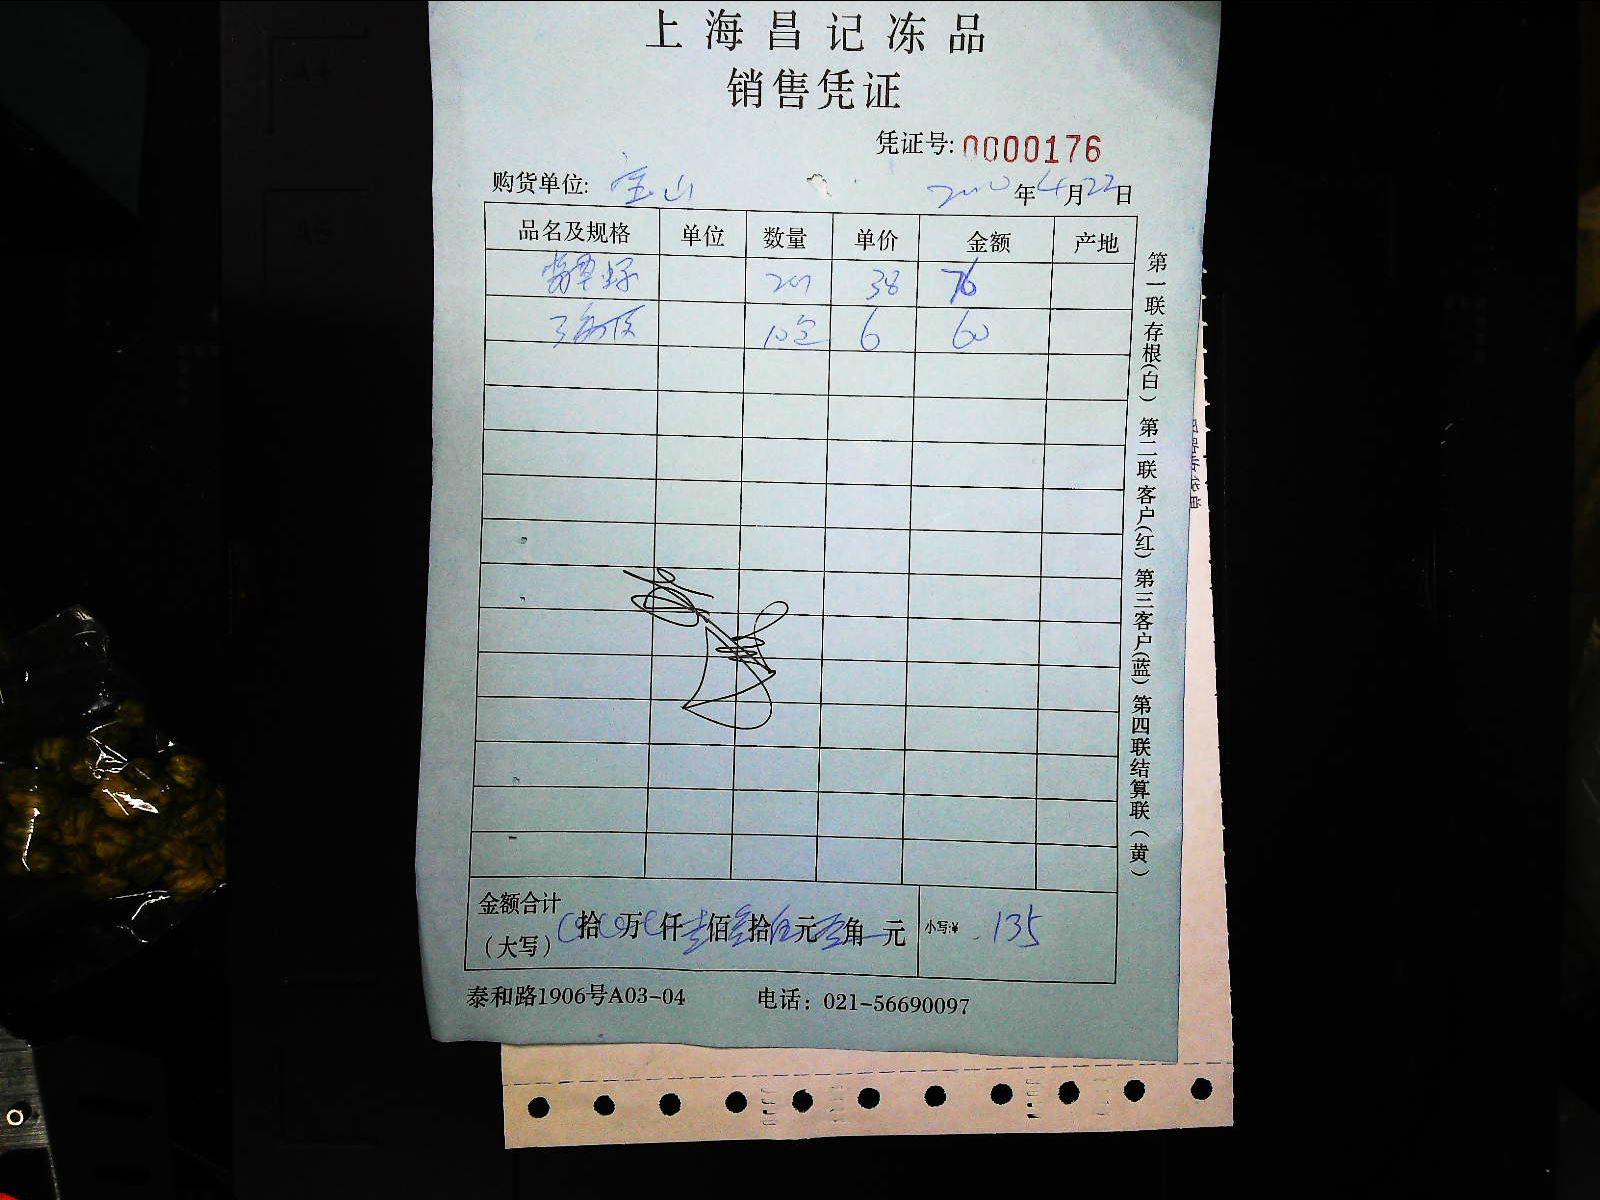 上海昌记冻品
销售凭证
凭证号: 0000176
购货单位: 宝山
年4月22日
品名及规格 单位 数量 单价 金额 产地
38 76
10包 6 60
金额合计
(大写)
拾 万 仟 壹佰 叁拾 伍元 角 元 小写:¥ 135
泰和路1906号A03-04 电话: 021-56690097
第一联存根(白) 第二联客户(红) 第三客户(蓝) 第四联结算联(黄)